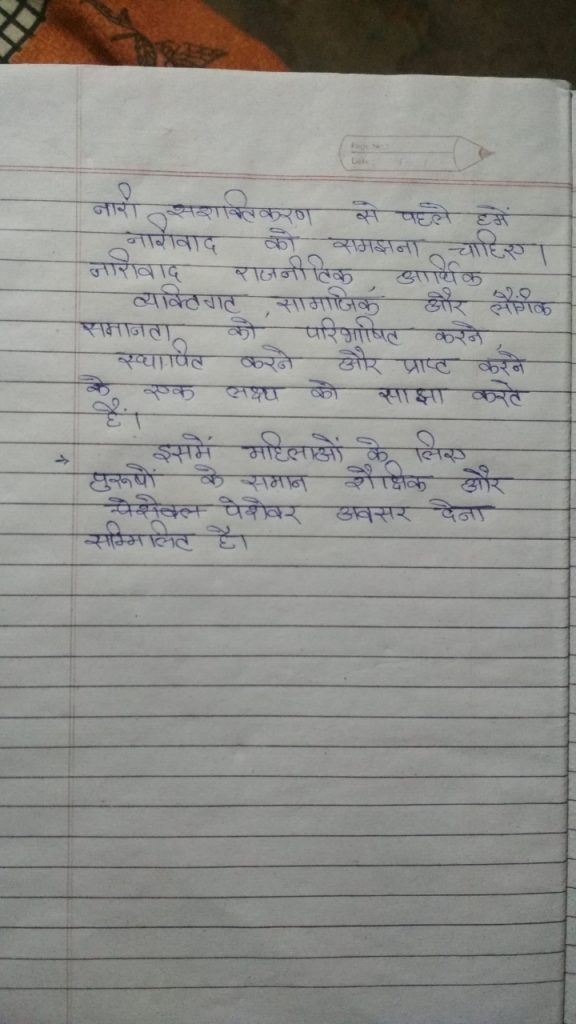 Page No.:
Date:
नारी सशक्तिकरण से पहले हमें
नारीवाद को समझना चाहिए।
नारीवाद राजनीतिक, आर्थिक
व्यक्तिगत, सामाजिक और लैंगिक
समानता को परिभाषित करने,
स्थापित करने और प्राप्त करने
के एक लक्ष्य को साझा करते
हैं।
→ इसमें महिलाओं के लिए
पुरूषों के समान शैक्षिक और
पेशेवर अवसर देना
सम्मिलित है।